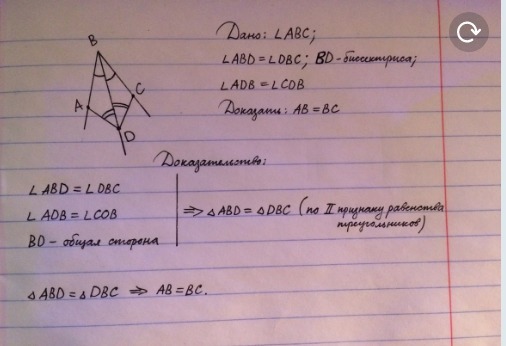 B
A
C
D
Дано: ∠ABC;
∠ABD = ∠DBC; BD - биссектриса;
∠ADB = ∠CDB
Доказать: AB = BC
Доказательство:
∠ABD = ∠DBC
∠ADB = ∠CDB
BD - общая сторона
⇒ △ABD = △DBC (по II признаку равенства
треугольников)
△ABD = △DBC ⇒ AB = BC.